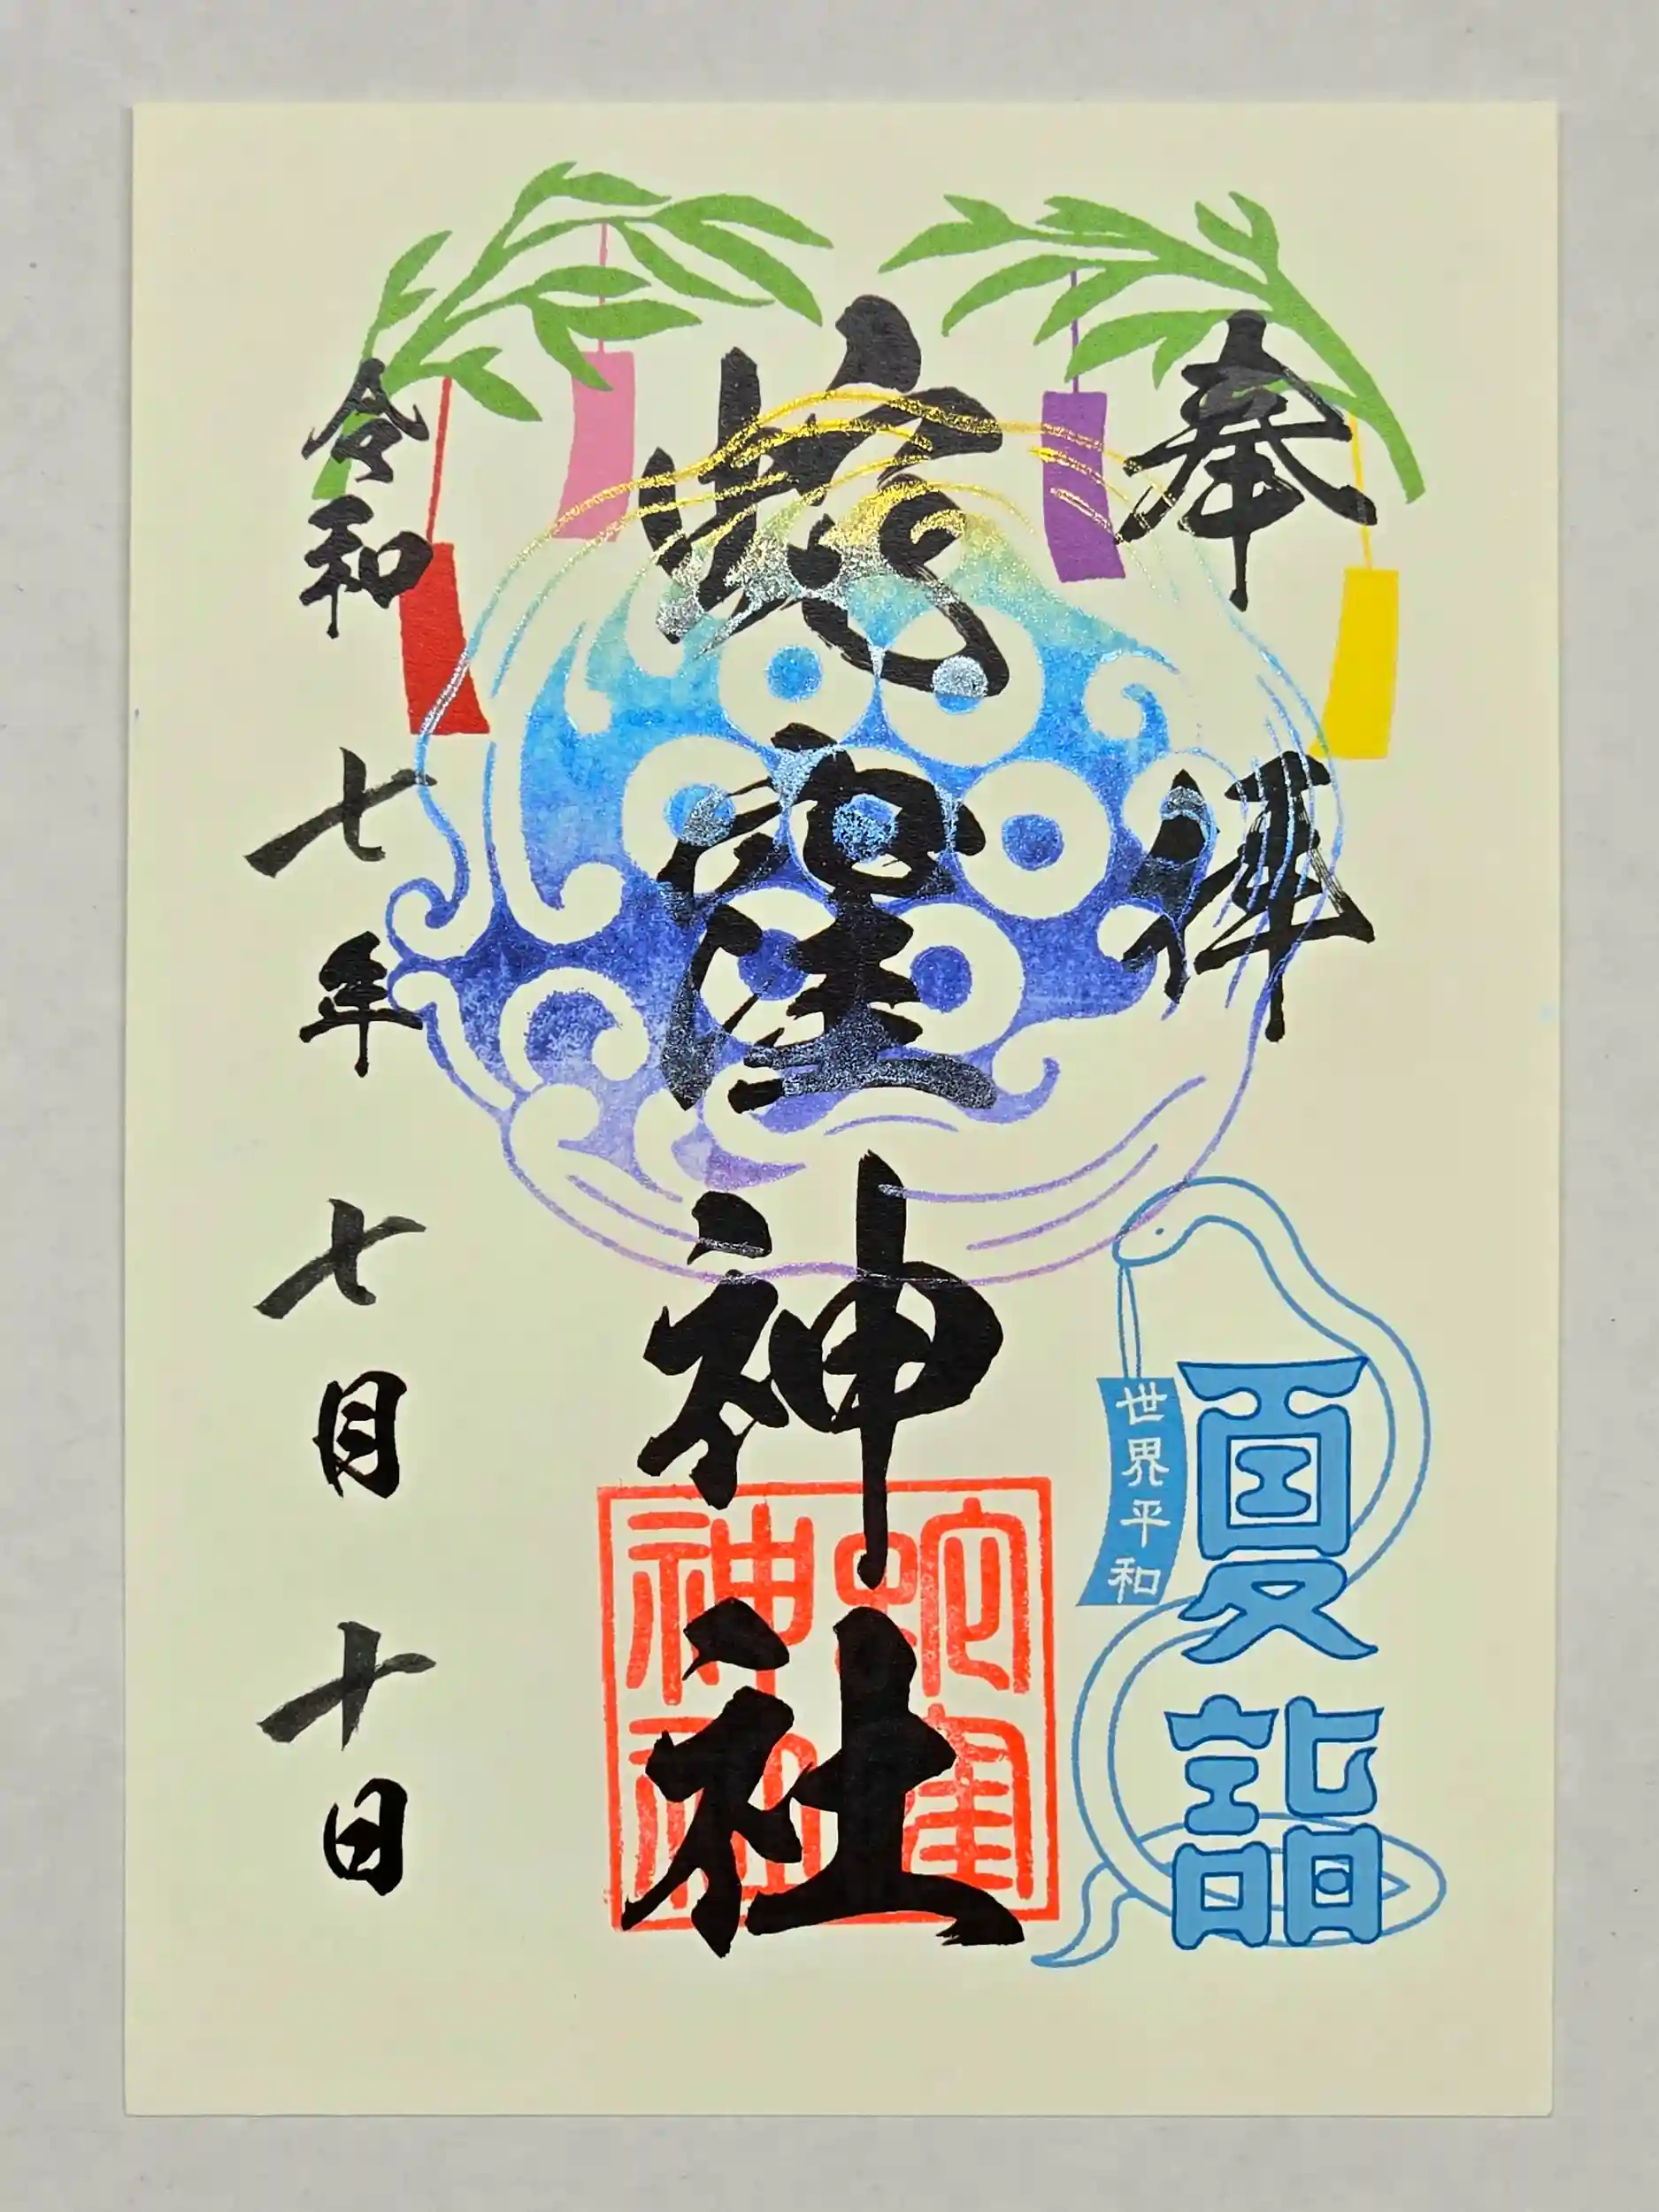 奉拝
蛇窪神社
蛇窪
神社
夏詣
世界平和
令和七年七月十日